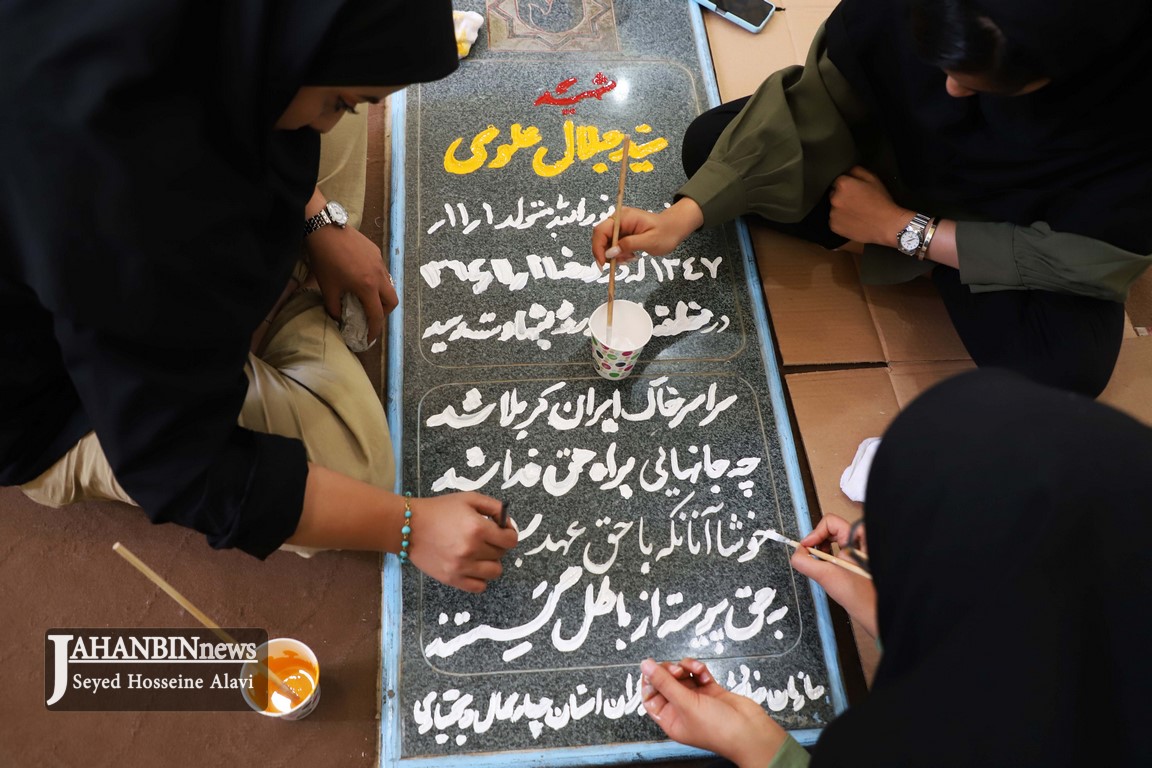 شهید
سید جلال علوی
متولد ۱ر۱۱ر
۱۳۴۷
در منطقه
بشهادت رسید
سراسر خاک ایران کربلا شد
چه جانهایی براه حق فدا شد
خوشا آنانکه با حق عهد
به حق پیوسته از باطل گسستند
سازمان
استان چهارمحال و بختیاری
JAHANBINnews
Seyed Hosseine Alavi